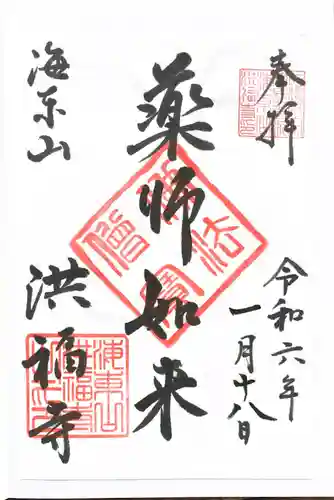 奉拝
令和六年
一月十八日
薬師如来
海東山
洪福寺